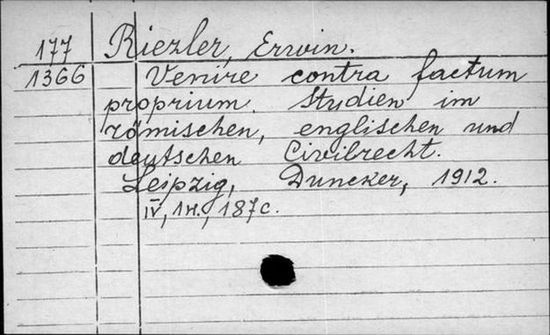 177 Riezler, Erwin.
1366 Venire contra factum
proprium. Studien im
römischen, englischen und
deutschen Civilrecht.
Leipzig, Duncker, 1912.
IV, 1 н., 187 с.